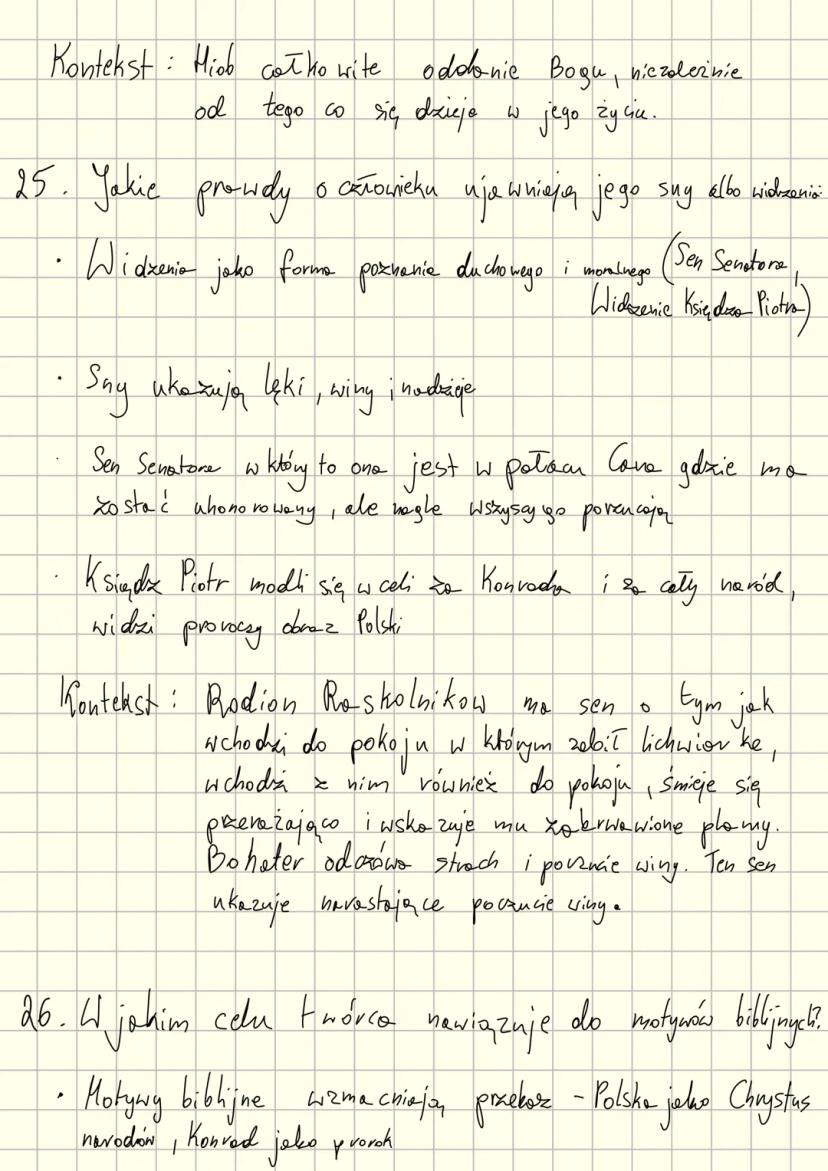 Kontekst: Hiob całkowite oddanie Bogu, niezależnie
od tego co się dzieje w jego życiu.
25. Jakie prawdy o człowieku ujawniają jego sny albo widzenia
• Widzenia jako forma poznania duchowego i moralnego (Sen Senatora,
Widzenie Księdza Piotra)
• Sny ukazują lęki, winy i nadzieje
• Sen Senatora w który to ona jest w pałacu Cara gdzie ma
zostać uhonorowany, ale nagle wszyscy go porzucają
• Ksiądz Piotr modli się w celi za Konrada i za cały naród,
widzi proroczy obraz Polski
Kontekst: Rodion Raskolnikow ma sen o tym jak
wchodzi do pokoju w którym zabił lichwiarkę,
wchodzi z nim również do pokoju, śmieje się
przerażająco i wskazuje mu zakrwawione plamy.
Bohater odczówa strach i poczucie winy. Ten sen
ukazuje narastające poczucie winy.
26. W jakim celu twórca nawiązuje do motywów biblijnych?
• Motywy biblijne wzmacniają przekaz - Polska jako Chrystus
narodów, Konrad jako prorok